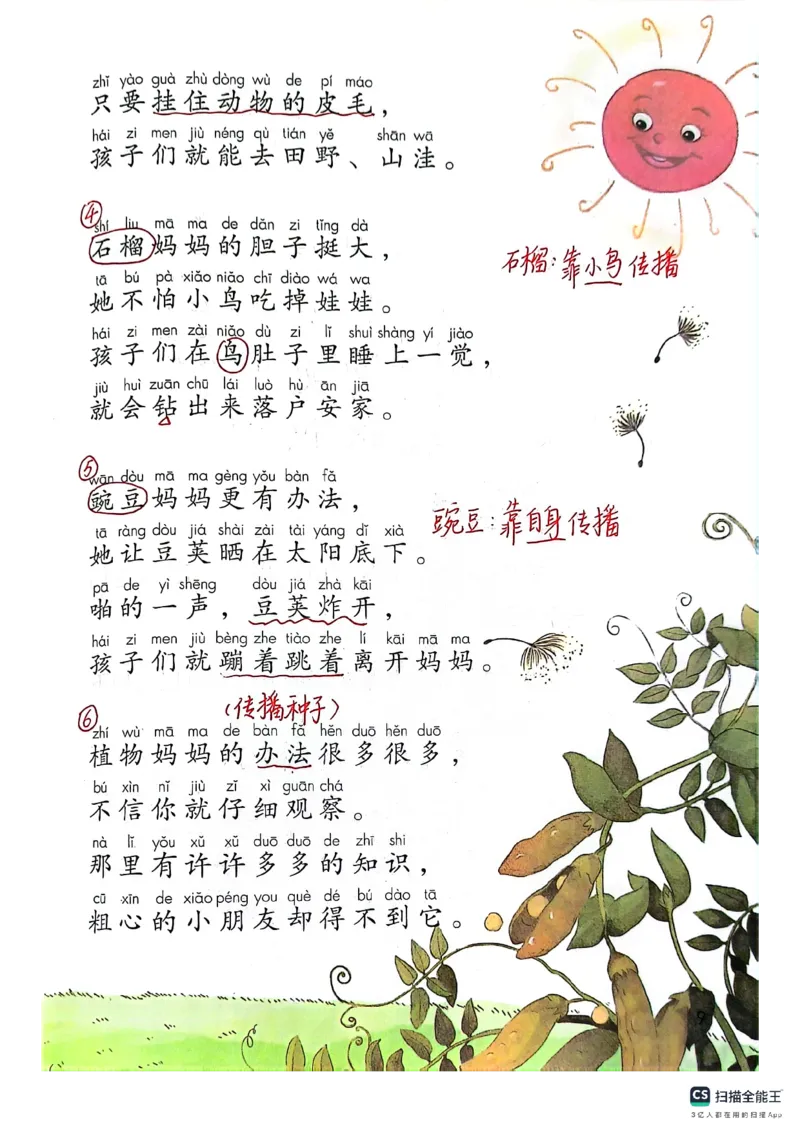 zhī yào guà zhù dòng wù de pí máo
只要挂住动物的皮毛，
hái zi men jiù néng qù tián yě shān wā
孩子们就能去田野、山洼。
④
shí liu mā ma de dǎn zi tǐng dà
石榴妈妈的胆子挺大，
石榴：靠小鸟传播
tā bú pà xiǎo niǎo chī diào wá wa
她不怕小鸟吃掉娃娃。
hái zi men zài niǎo dù zi lǐ shuì shàng yí jiào
孩子们在鸟肚子里睡上一觉，
jiù huì zuān chū lái luò hù ān jiā
就会钻出来落户安家。
⑤
wān dòu mā ma gèng yǒu bàn fǎ
豌豆妈妈更有办法，
豌豆：靠自身传播
tā ràng dòu jiá shài zài tài yáng dǐ xià
她让豆荚晒在太阳底下。
pā de yì shēng dòu jiá zhà kāi
啪的一声，豆荚炸开，
hái zi men jiù bèng zhe tiào zhe lí kāi mā ma
孩子们就蹦着跳着离开妈妈。
⑥
（传播种子）
zhí wù mā ma de bàn fǎ hěn duō hěn duō
植物妈妈的办法很多很多，
bú xìn nǐ jiù zǐ xì guān chá
不信你就仔细观察。
nà lǐ yǒu xǔ xǔ duō duō de zhī shi
那里有许许多多的知识，
cū xīn de xiǎo péng you què dé bú dào tā
粗心的小朋友却得不到它。
9
CS 扫描全能王
3亿人都在用的扫描App